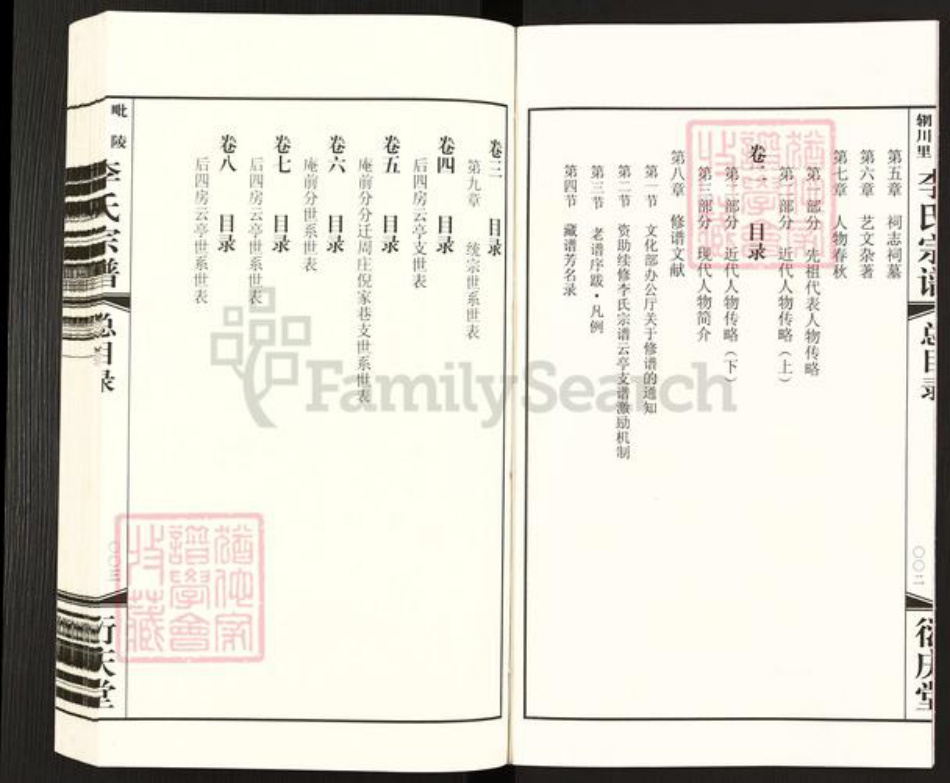 辋川里
李氏宗谱
总目录
〇〇二
衍庆堂
第五章 祠志祠墓
第六章 艺文杂著
第七章 人物春秋
第一部分 先祖代表人物传略
第二部分 近代人物传略(上)
卷二 目录
第二部分 近代人物传略(下)
第三部分 现代人物简介
第八章 修谱文献
第一节 文化部办公厅关于修谱的通知
第二节 资助续修李氏宗谱云亭支谱激励机制
第三节 老谱序跋·凡例
第四节 藏谱芳名录
卷三 目录
第九章 统宗世系世表
卷四 目录
后四房云亭支世表
卷五 目录
庵前分分迁周庄倪家巷支世系世表
卷六 目录
庵前分世系世表
卷七 目录
后四房云亭世系世表
卷八 目录
后四房云亭世系世表
毗陵
李氏宗谱
总目录
〇〇三
衍庆堂
FamilySearch
譜學會
收藏